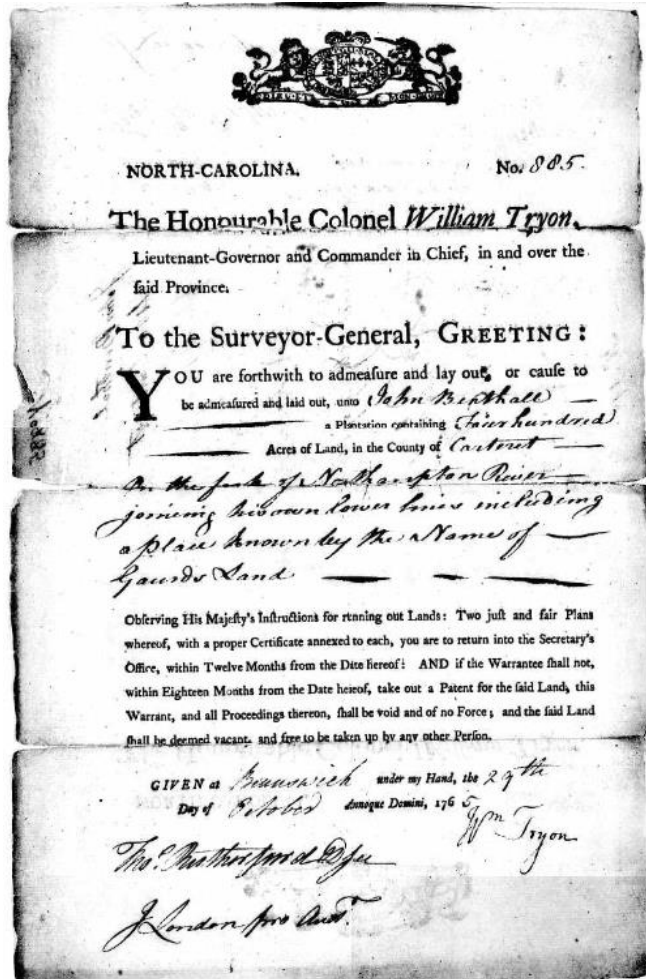 NORTH-CAROLINA. No. 885.
The Honourable Colonel William Tryon,
Lieutenant-Governor and Commander in Chief, in and over the
said Province.
To the Surveyor-General, GREETING:
YOU are forthwith to admeasure and lay out, or cause to
be admeasured and laid out, unto John Benthall
a Plantation containing Four hundred
Acres of Land, in the County of Carteret
On the fork of Northampton River
joining his own lower lines including
a place known by the Name of
Gaurds Land
Observing His Majesty's Instructions for running out Lands: Two just and fair Plans
whereof, with a proper Certificate annexed to each, you are to return into the Secretary's
Office, within Twelve Months from the Date hereof: AND if the Warrantee shall not,
within Eighteen Months from the Date hereof, take out a Patent for the said Land, this
Warrant, and all Proceedings thereon, shall be void and of no Force; and the said Land
shall be deemed vacant, and free to be taken up by any other Person.
GIVEN at Brunswick under my Hand, the 29th
Day of October Annoque Domini, 1765
Wm Tryon
Tho.s Rutherfurd
J London pro Aud.r
No 885